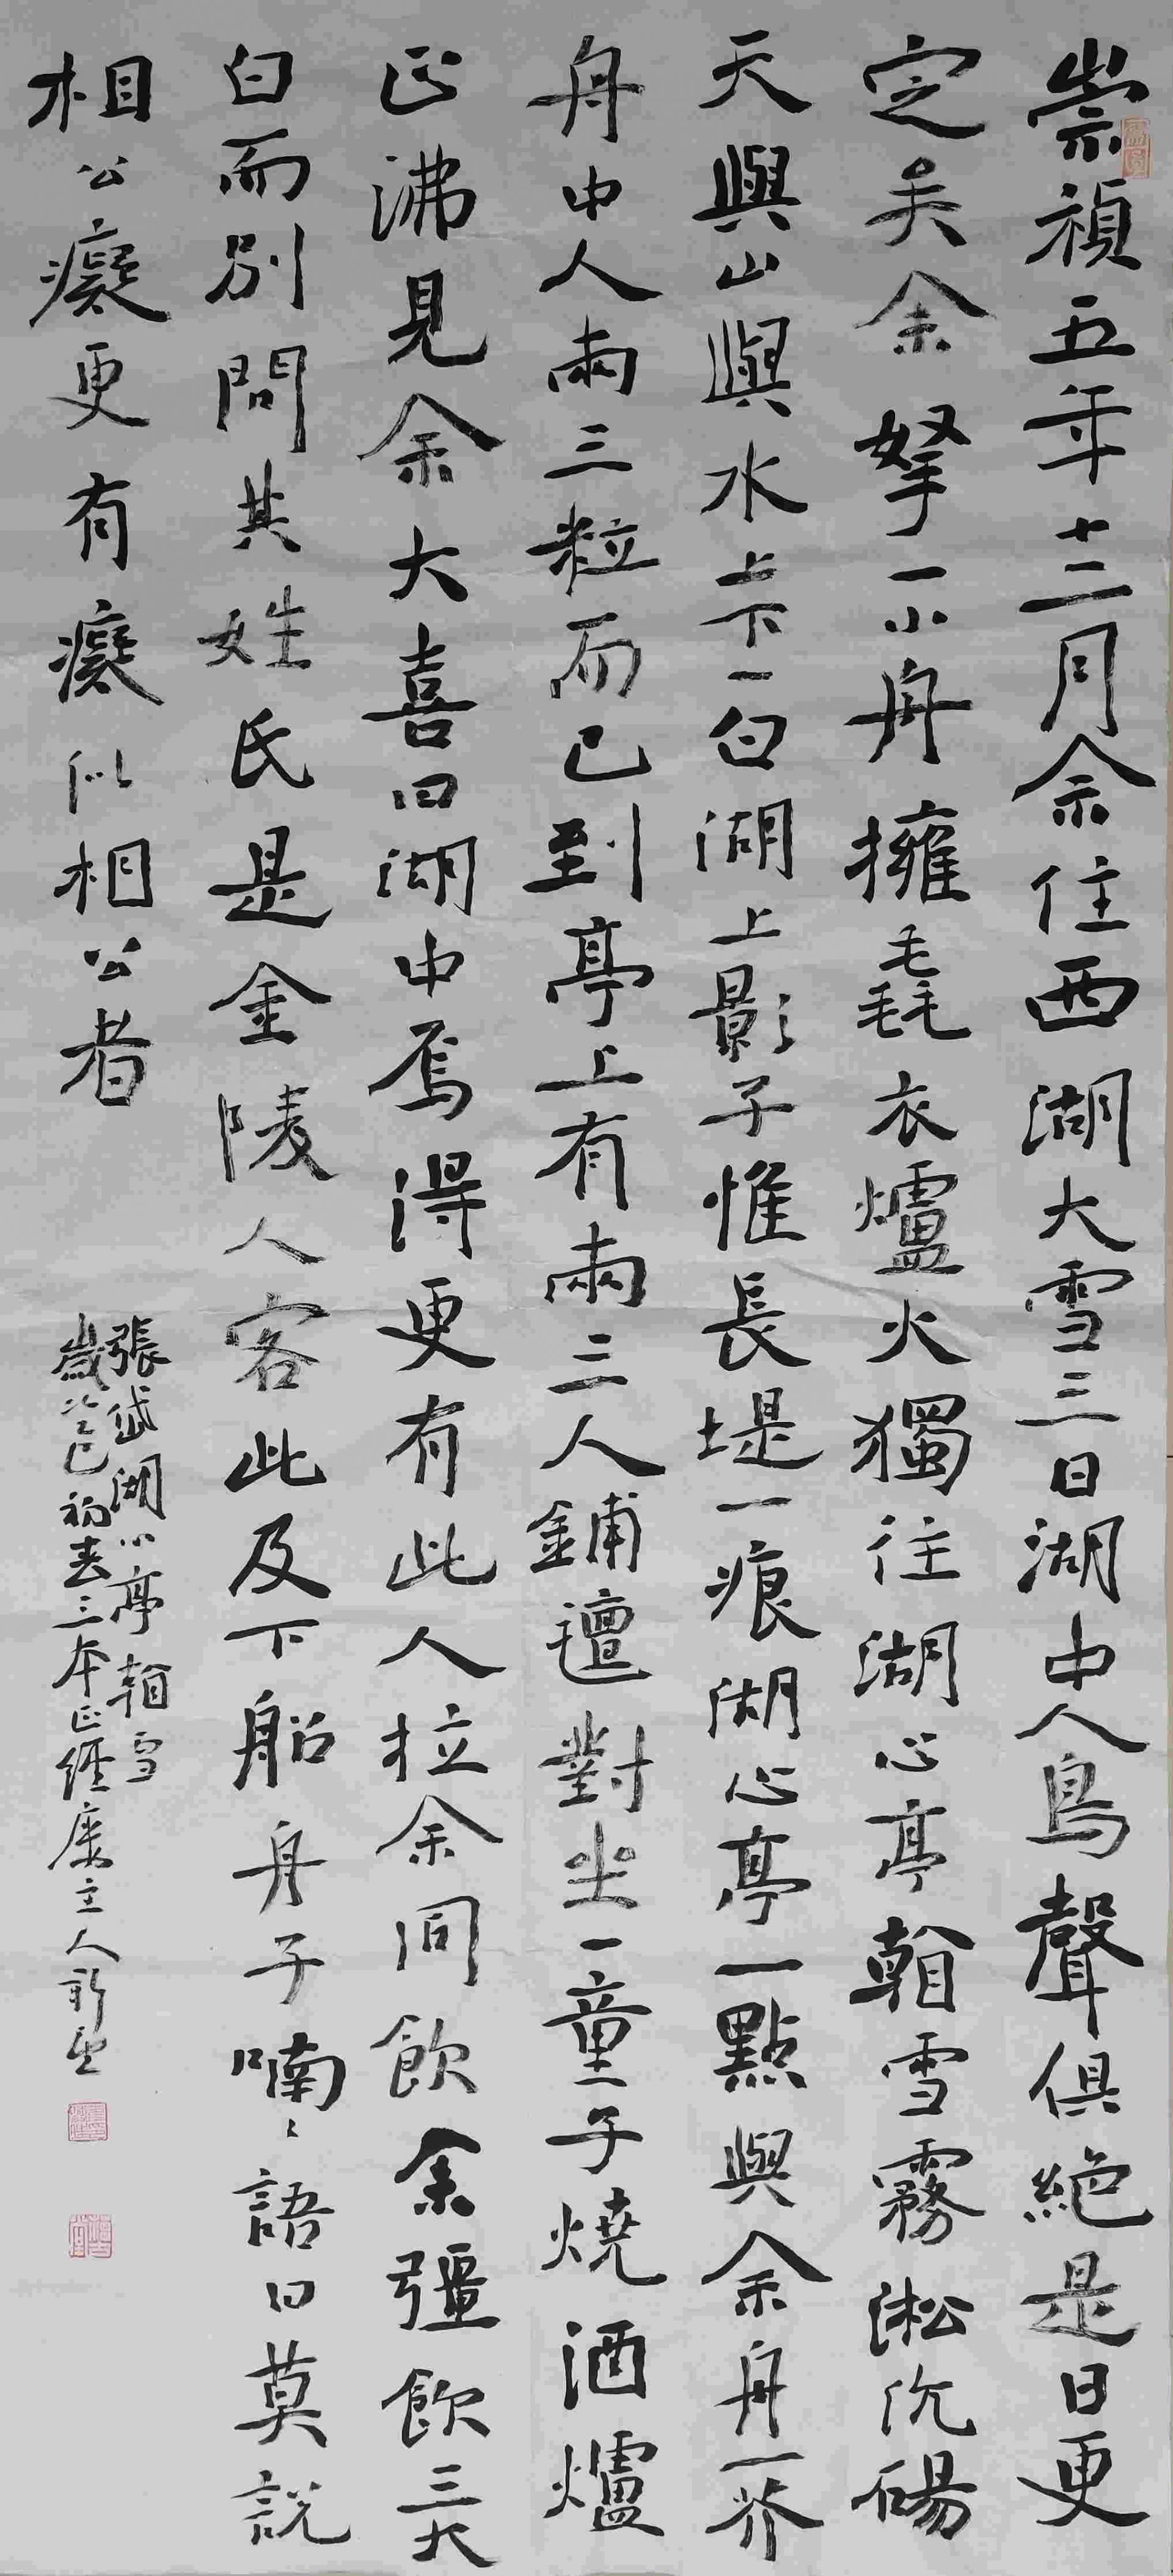 崇禎五年十二月余住西湖大雪三日湖中人鳥聲俱絕是日更
定矣余拏一小舟擁毳衣爐火獨往湖心亭看雪霧淞沆碭
天與山與水上下一白湖上影子惟長堤一痕湖心亭一點與余舟一芥
舟中人兩三粒而已到亭上有兩三人鋪氈對坐一童子燒酒爐
正沸見余大喜曰湖中焉得更有此人拉余同飲余彊飲三大
白而別問其姓氏是金陵人客此及下船舟子喃〻語曰莫說
相公癡更有癡似相公者
張岱湖心亭看雪
歲巳初春三本正經廔主人